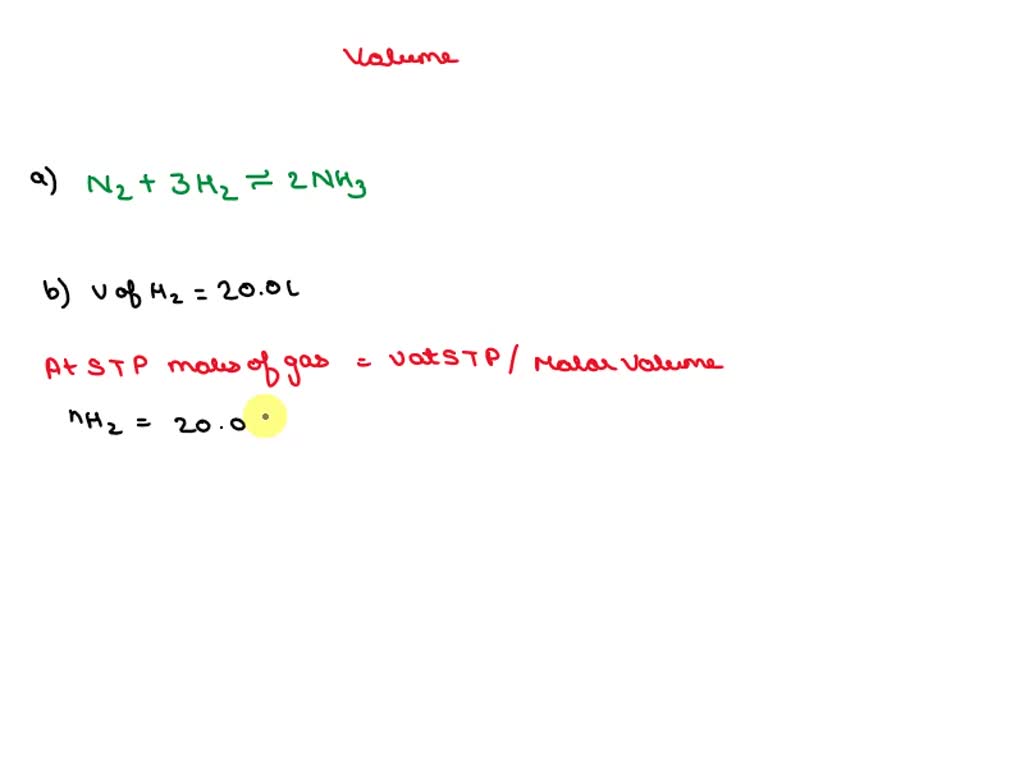 Volume
a) N₂ + 3H₂ ⇌ 2NH₃
b) V of H₂ = 20.0L
At STP moles of gas = V at STP / Molar Volume
nH₂ = 20.0